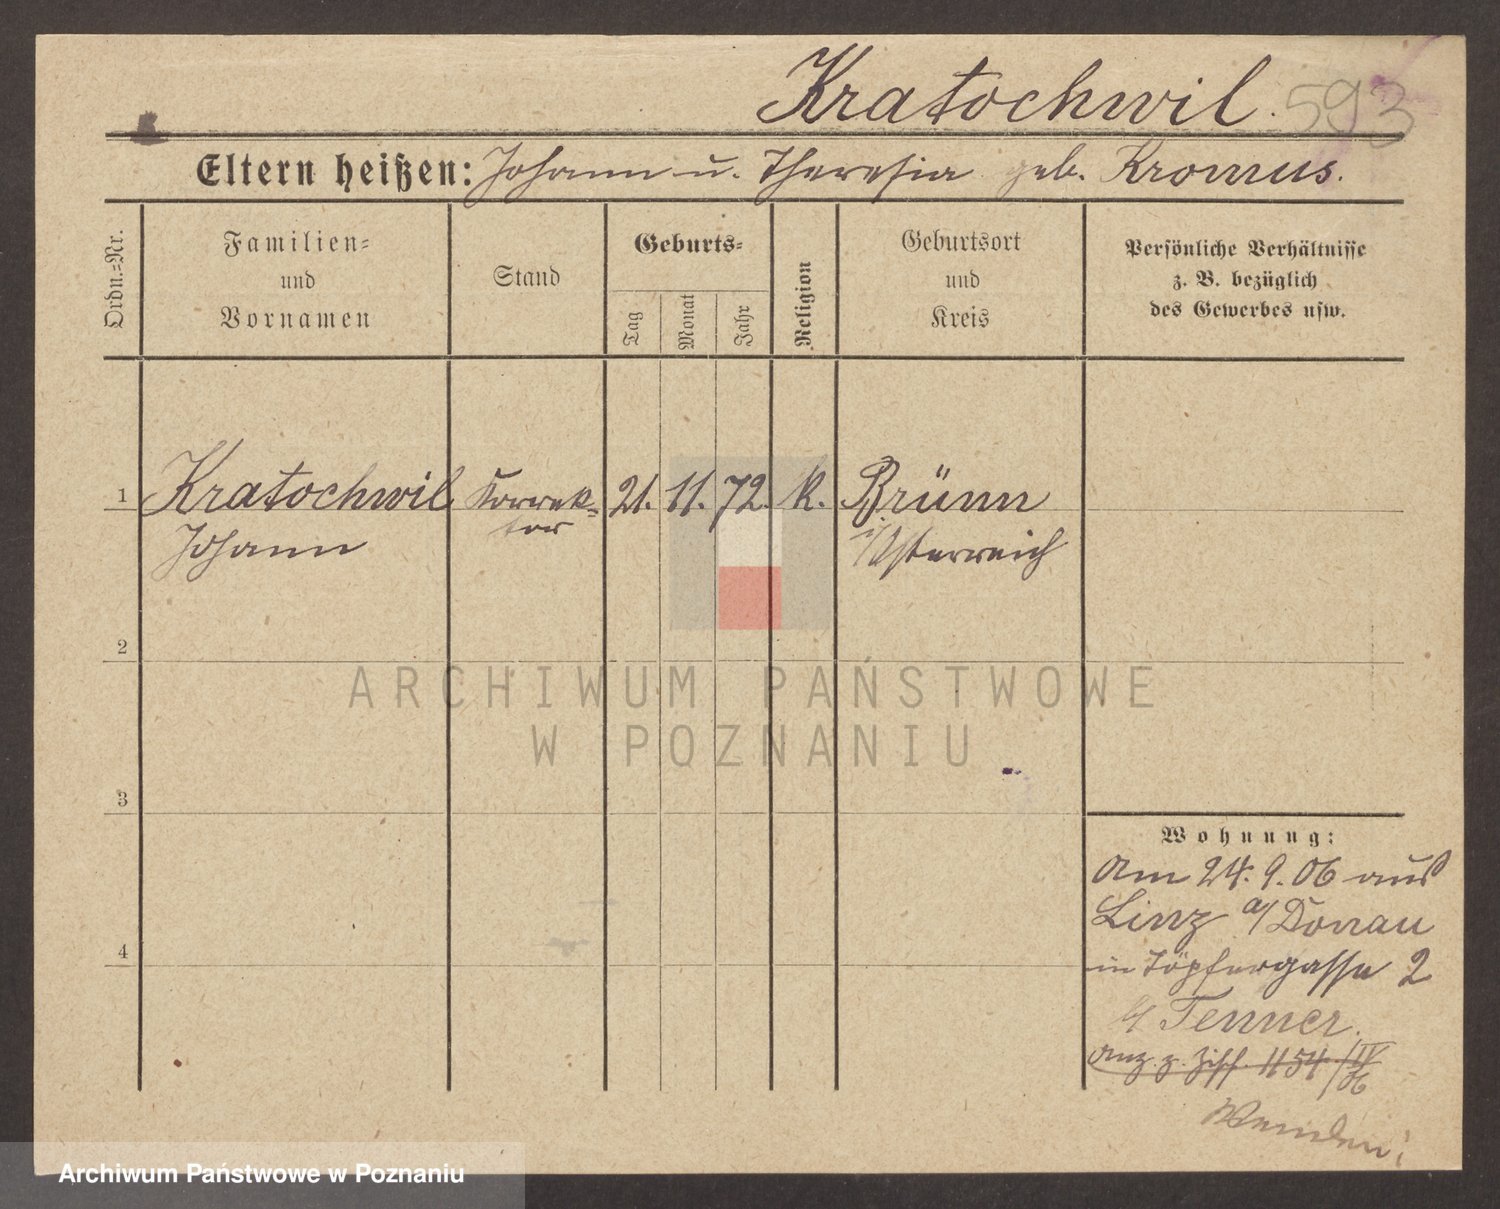 Kratochwil. 593
Eltern heißen: Johann u. Theresia geb. Kromus.
Ordn.=Nr.
Familien=
und
Vornamen
Stand
Geburts=
Tag
Monat
Jahr
Religion
Geburtsort
und
Kreis
Persönliche Verhältnisse
z. B. bezüglich
des Gewerbes usw.
1 Kratochwil Korrek= 21. 11. 72. K. Brünn
Johann tor i/Österreich
2
ARCHIWUM PAŃSTWOWE
W POZNANIU
3
Wohnung:
Am 24. 9. 06 aus
Linz a/Donau
4
in Töpfergasse 2
b/ Tenner.
Anz. z. Ziff. 1154/IV 06
Wenden!
Archiwum Państwowe w Poznaniu